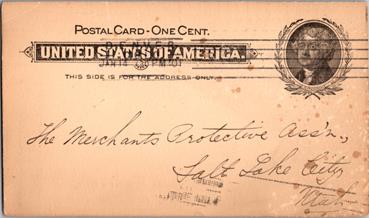 POSTAL CARD - ONE CENT.
UNITED STATES OF AMERICA.
DENVER
JAN 14
PM '01
THIS SIDE IS FOR THE ADDRESS ONLY.
The Merchants Protective Ass'n.,
Salt Lake City
Utah